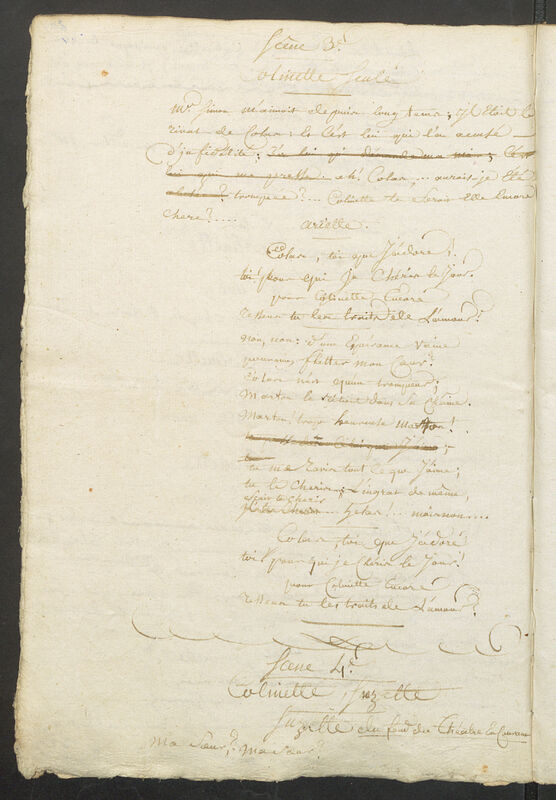 Scène 3e
Colinette Seule
mr Simon m'aimoit depuis long tems; il Etoit le
rival de Colas; Et c'est lui qui l'a accusé
d'infidélité; j'ai lui qui demanda ma main; C'est
lui qui me presse ah! Colas,... aurais je Eté
trompeé?... Colinette te Serois Elle Encore
Chere?....
ariette.
Colas, toi que J'adore!
toi! pour qui Je Cheris le Jour.
pour Colinette Encore
ressens tu les traits de L'amour?
non, non: d'une Esperance Vaine
pourquoi flatter mon Cœur?
Colas n'est qu'un trompeur;
Marton le retient dans Sa Chaine.
Marton! trop heureuse Marton!
tu me ravis tout Ce que J'aime;
tu le Cheris; L'ingrat de même,
... helas!... mais non....
Colas, toi que J'adore
toi! pour qui je Cheris le Jour!
pour Colinette Encore
ressens tu les traits de L'amour?
Scène 4e
Colinette, Suzette
Suzette du fond du Théatre En Courant
Ma Sœur? Ma Sœur?